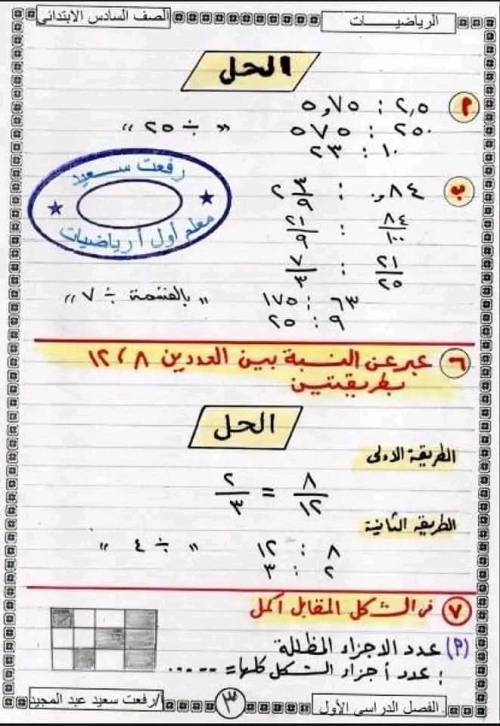 الرياضيـــات
الصف السادس الابتدائى
الحل
٢,٥ : ٥,٧٥
٢٥٠ : ٥٧٥ " ÷ ٢٥ "
١٠ : ٢٣
رفعت سعيد
معلم أول أ رياضيات
ب ٠,٨٤ : ٢ ٣/٩
٨٤/١٠٠ : ٢١/٩
٢١/٢٥ : ٧/٣
٦٣ : ١٧٥ " بالقسمة ÷ ٧ "
٩ : ٢٥
٦ عبر عن النسبة بين العددين ٨ ، ١٢
بطريقتين
الحل
الطريقة الاولى
٨/١٢ = ٢/٣
الطريقة الثانية
٨ : ١٢ " ÷ ٤ "
٢ : ٣
٧ فى الشكل المقابل اكمل
(٢) عدد الاجزاء المظللة
: عدد أجزاء الشكل كلها = .....
الفصل الدراسى الأول
٣
أ/رفعت سعيد عبد المجيد